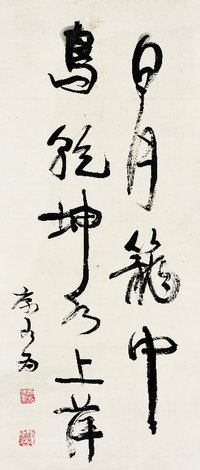 日月籠中
鳥乾坤水上萍
康有為